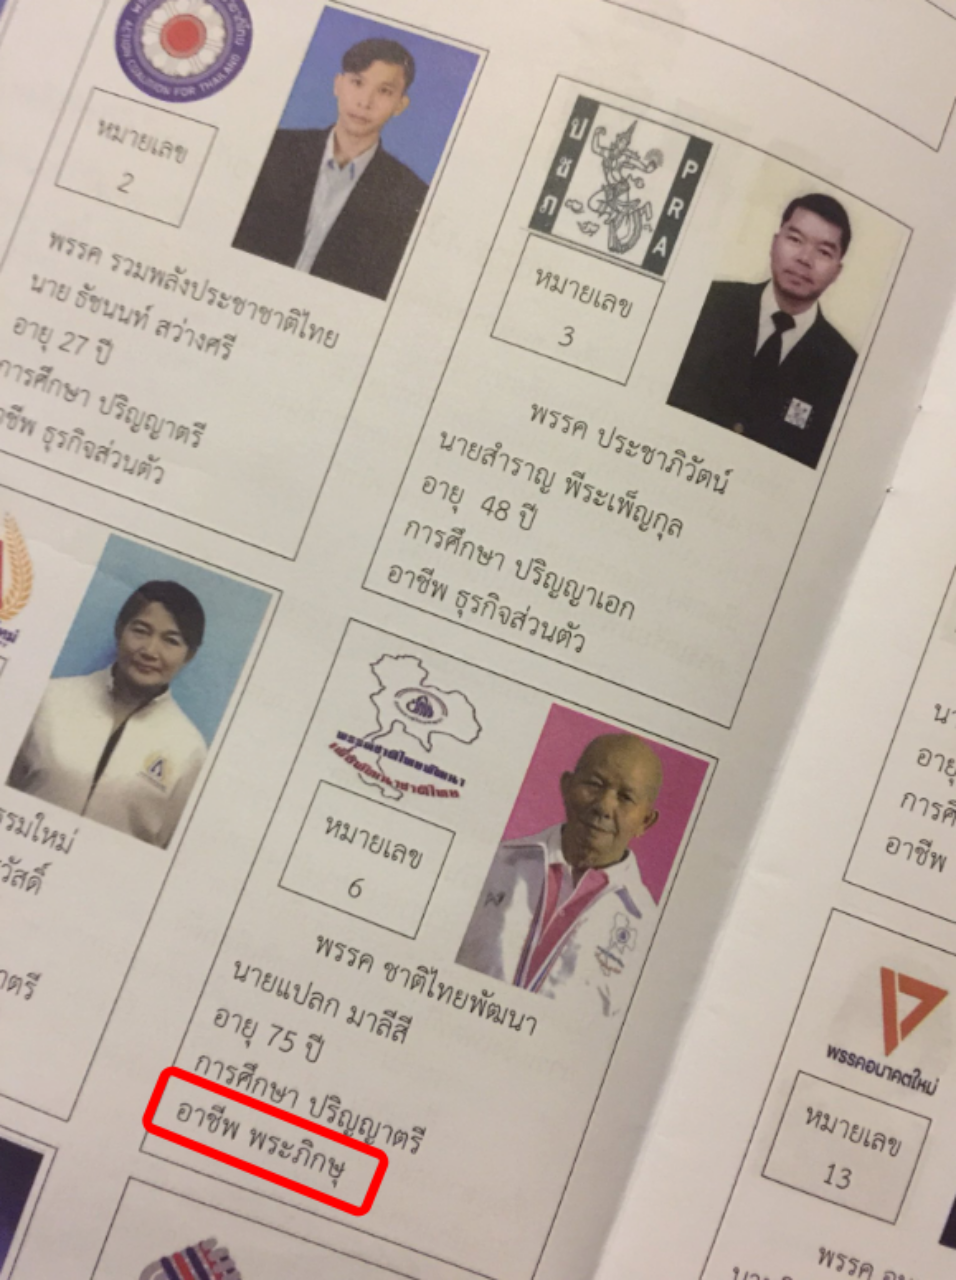 ACTION COALITION FOR THAILAND
หมายเลข
2
พรรค รวมพลังประชาชาติไทย
นาย ธัชนนท์ สว่างศรี
อายุ 27 ปี
การศึกษา ปริญญาตรี
อาชีพ ธุรกิจส่วนตัว
ปชภ
PRA
หมายเลข
3
พรรค ประชาภิวัตน์
นายสำราญ พีระเพ็ญกุล
อายุ 48 ปี
การศึกษา ปริญญาเอก
อาชีพ ธุรกิจส่วนตัว
พรรคชาติไทยพัฒนา
หมายเลข
6
พรรค ชาติไทยพัฒนา
นายแปลก มาลีสี
อายุ 75 ปี
การศึกษา ปริญญาตรี
อาชีพ พระภิกษุ
อาชีพ
พรรคอนาคตใหม่
หมายเลข
13
พรรค